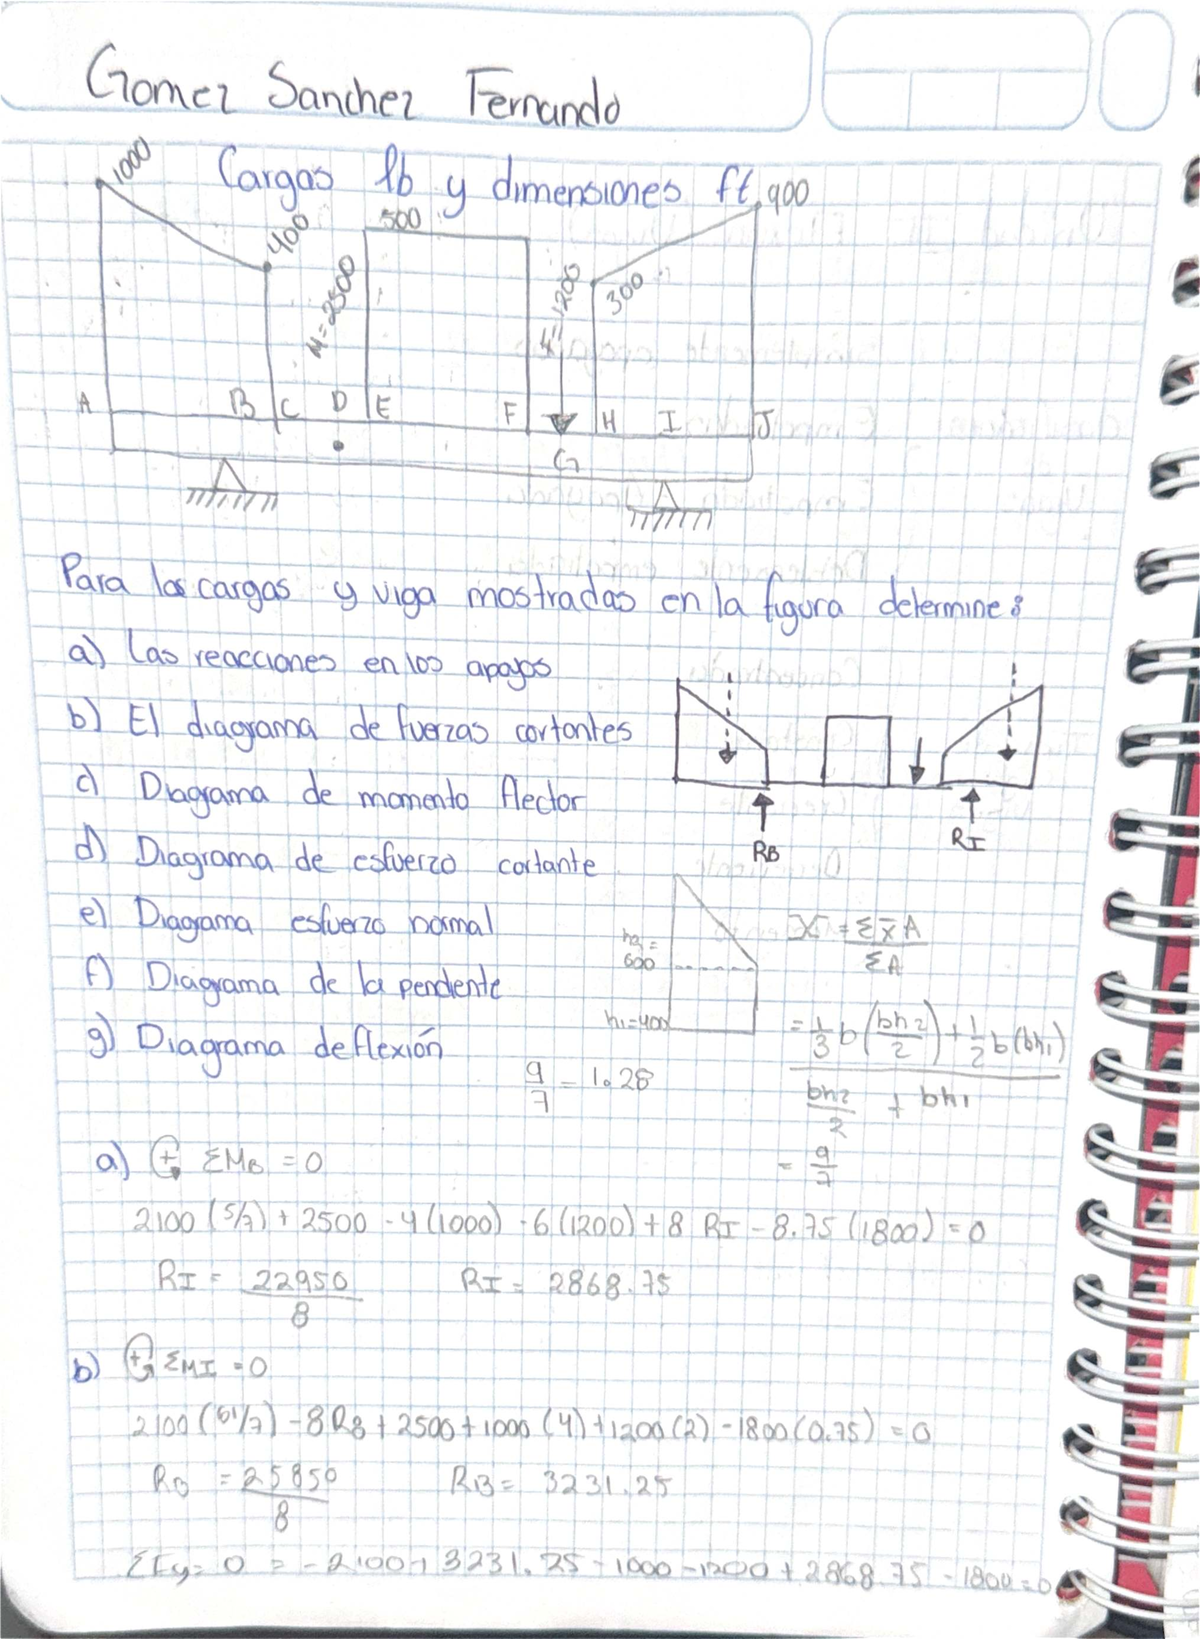 Gomez Sanchez Fernando
Cargas lb y dimensiones ft
1000
400
M=2500
500
1200
300
900
A B C D E F G H I J
Para las cargas y viga mostradas en la figura determine:
a) Las reacciones en los apoyos
b) El diagrama de fuerzas cortantes
c) Diagrama de momento flector
d) Diagrama de esfuerzo cortante
e) Diagama esfuerzo normal
f) Diagrama de la pendiente
g) Diagrama deflexión
RB
RI
h2 = 600
h1=400
X = ΣxA / ΣA
= 1/3 b (bh2/2) + 1/2 b (bh1)
bh2/2 + bh1
= 9/7
9/7 = 1.28
a) + ΣMB = 0
2100 (5/7) + 2500 - 4 (1000) - 6 (1200) + 8 RI - 8.75 (1800) = 0
RI = 22950/8 RI = 2868.75
b) + ΣMI = 0
2100 (61/7) - 8RB + 2500 + 1000 (4) + 1200 (2) - 1800 (0.75) = 0
RB = 25850/8 RB = 3231.25
ΣFy = 0 = -2100 + 3231.25 - 1000 - 1200 + 2868.75 - 1800 = 0